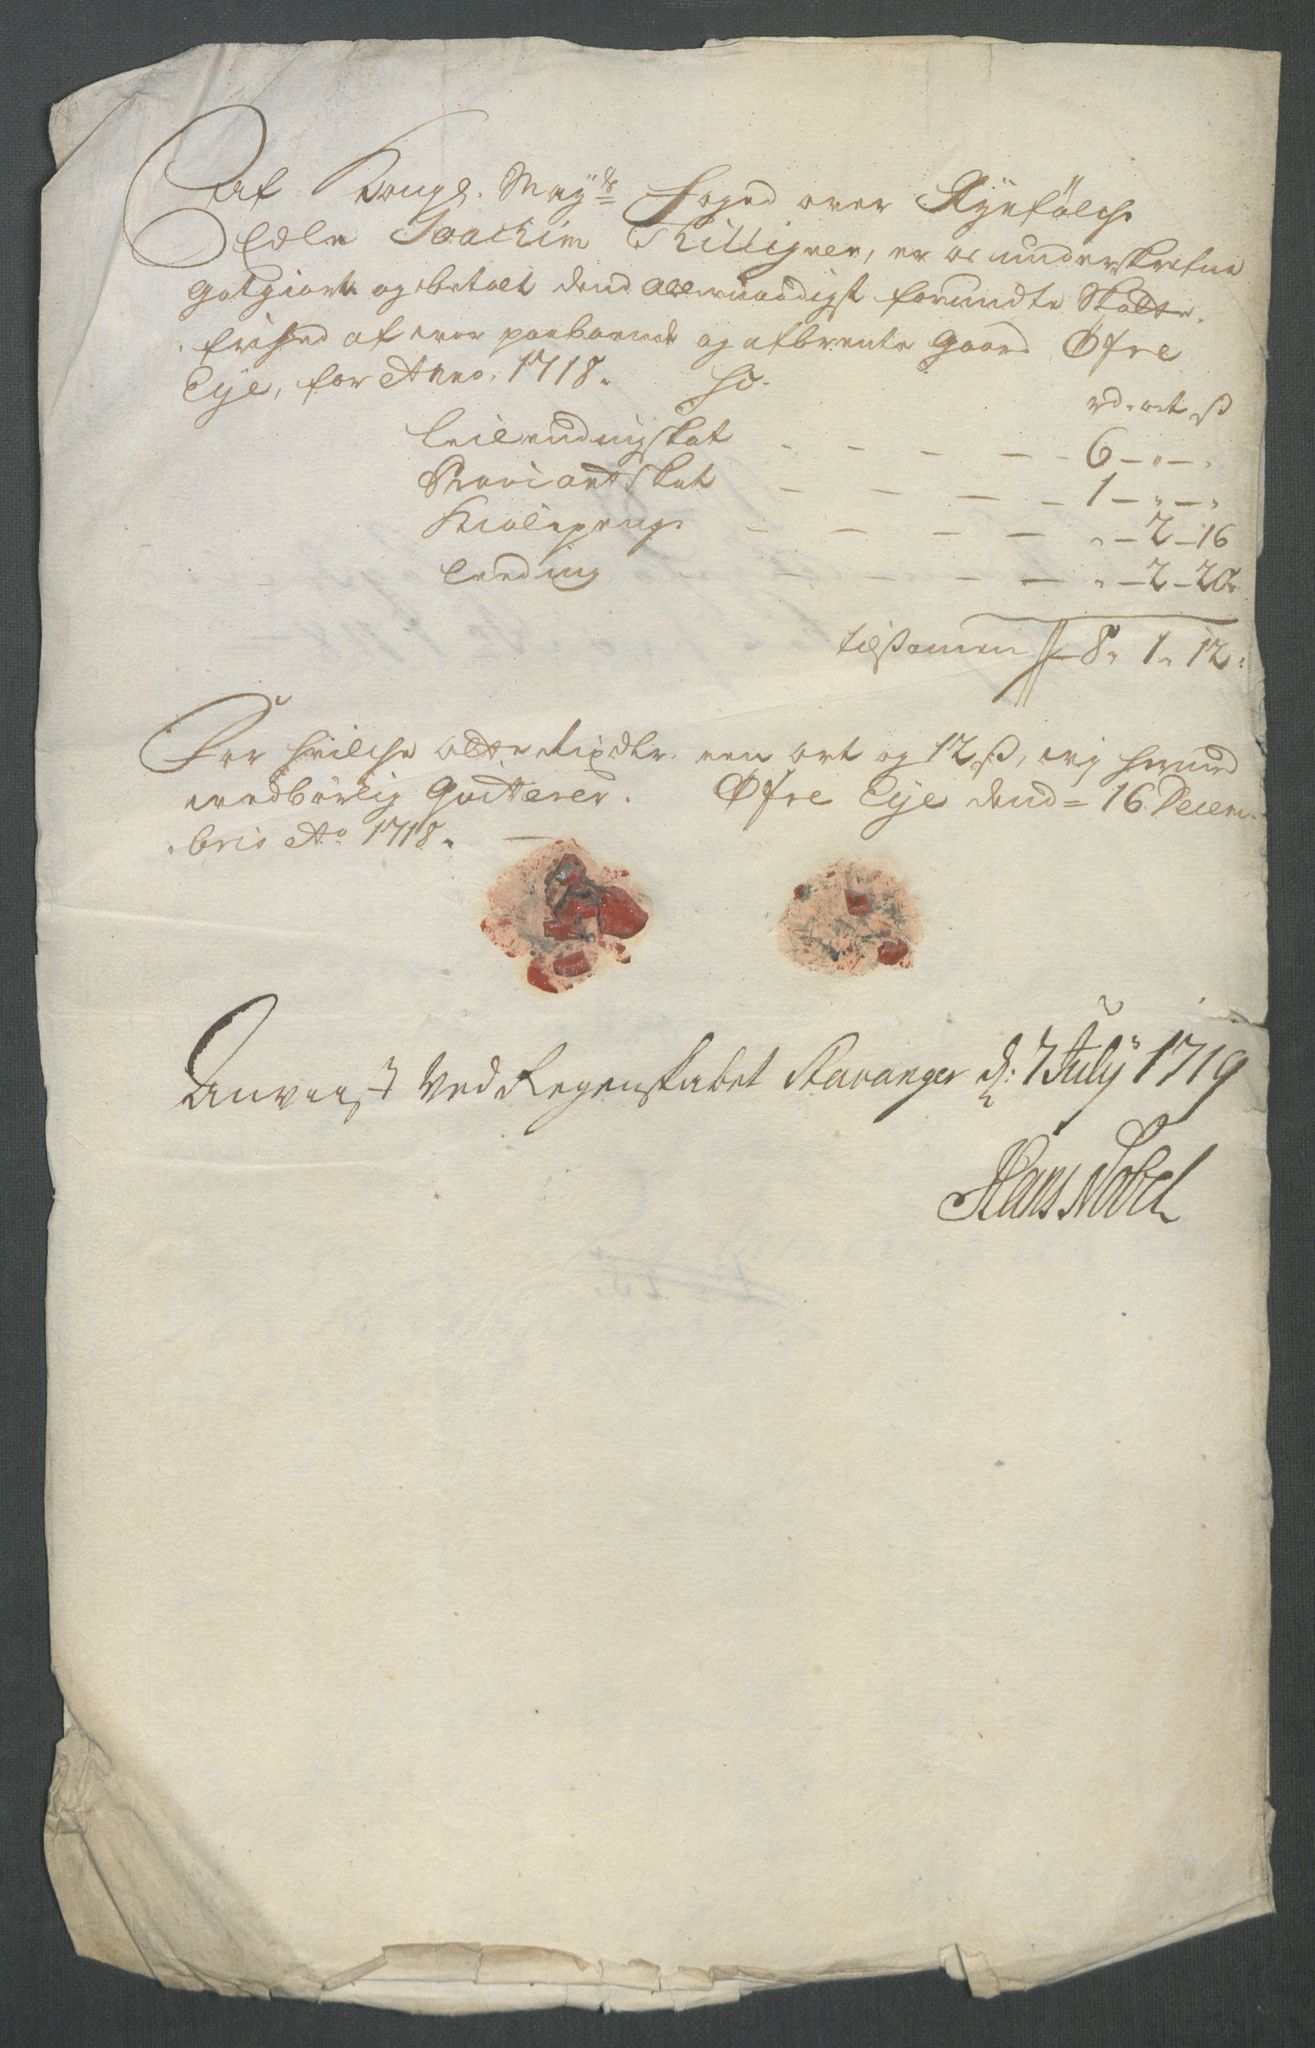 Af Kongl. May.ts Foged over Ryefølche
Edle Joachim Killigrev, er os underskrefne
Gotgiort og betalt dend Allernaadigst forundte Skatte-
frihed af voor paaboende og afbrente Gaard Øfre
Eye, for Anno 1718. So.
rd. ort ß
Leilendingskat - - - - 6 - „ - „
Proviantskat - - - - 1 - „ - „
Kiølepeng - - - - „ - 2 - 16
Leeding - - - - „ - 2 - 20
tilsamen 8. 1. 12.
For hvilche otte Rixdlr. een ort og 12 ß, vij hermed
vedbørlig Qvitterer. Øfre Eye dend 16 Decem-
bris Ao 1718.
Anviist ved Regenskabet Stavanger d: 7 July 1719
Hans Nobel